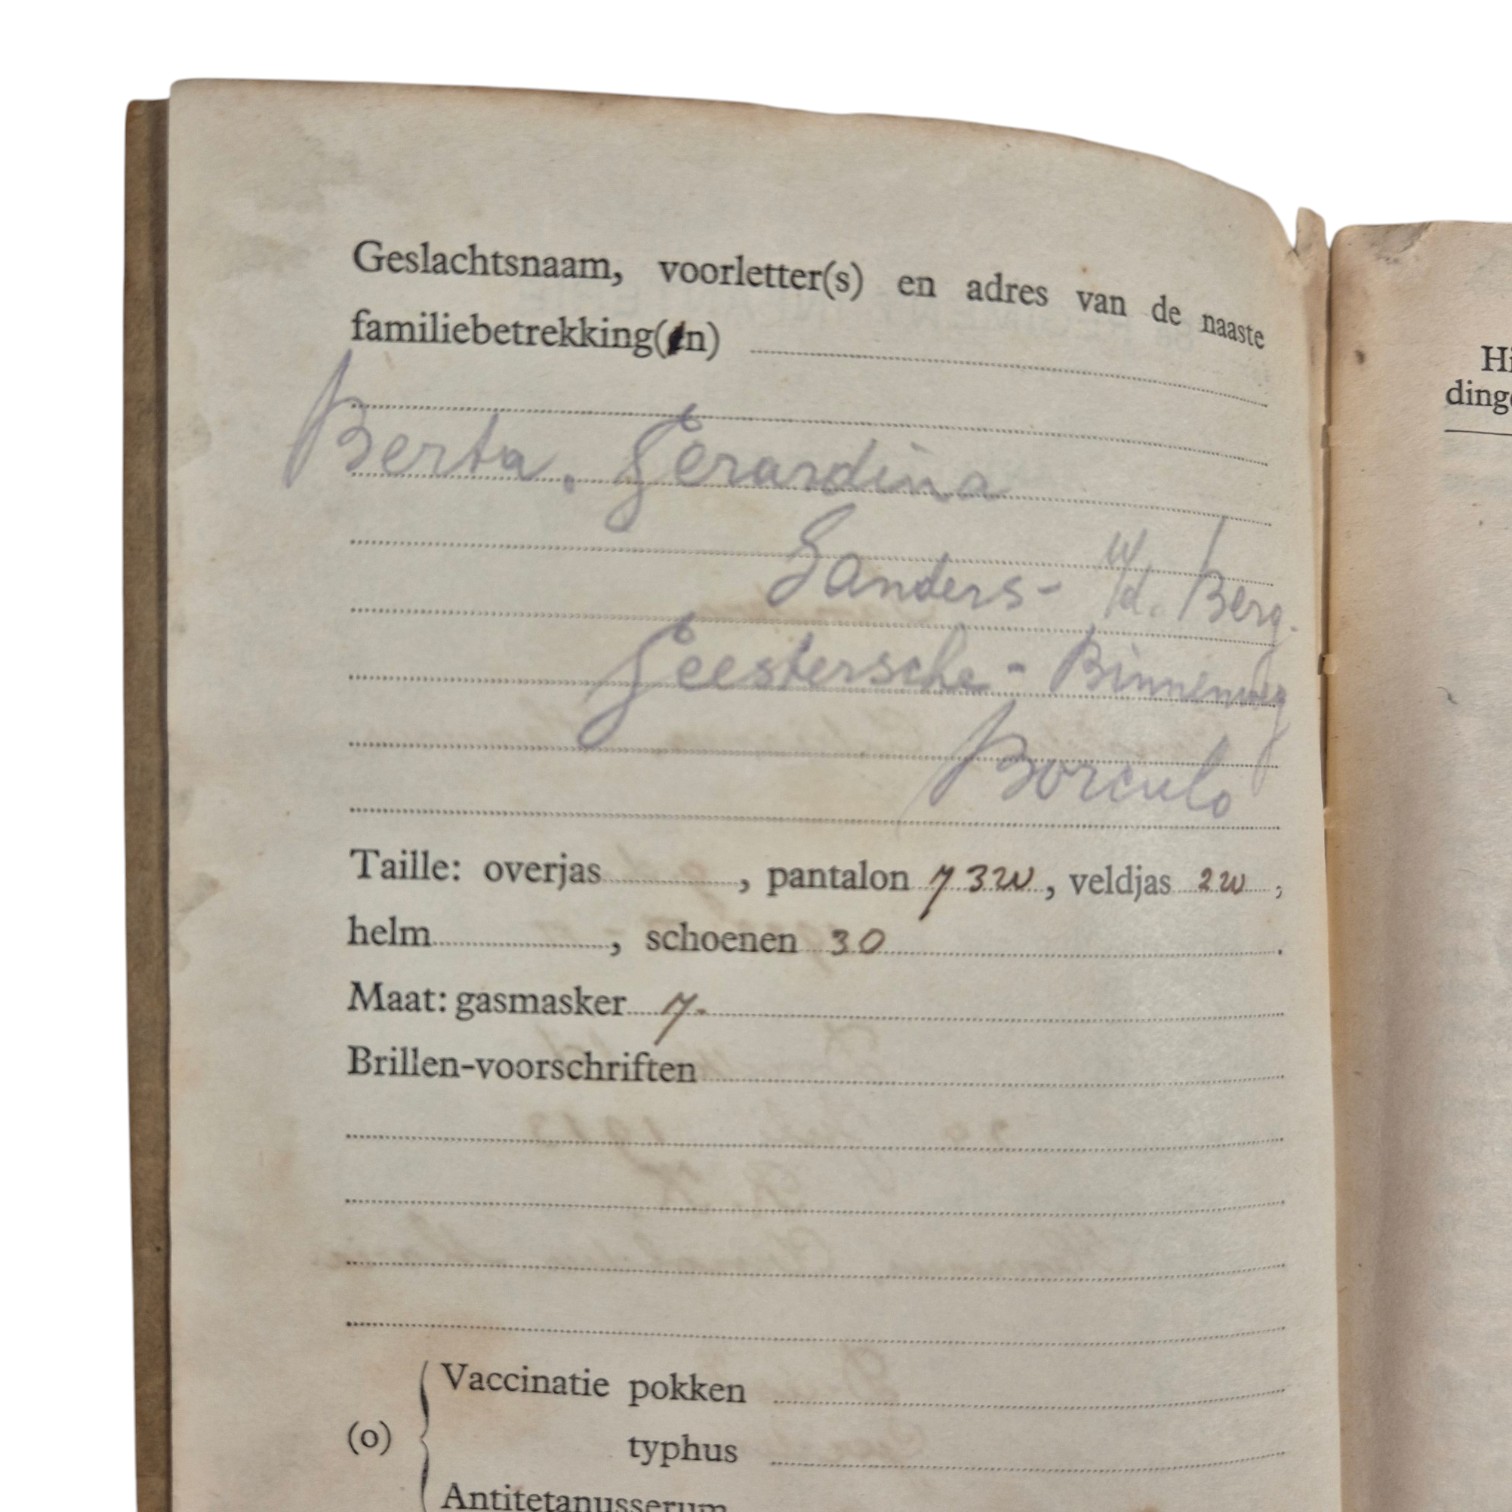 Geslachtsnaam, voorletter(s) en adres van de naaste
familiebetrekking(en)
Berta. Gerardina
Sanders - v/d. Berg.
Geestersche - Binnenweg
Borculo
Taille: overjas , pantalon 73W, veldjas 2W,
helm , schoenen 30.
Maat: gasmasker 7.
Brillen-voorschriften
(o) Vaccinatie pokken
typhus
Antitetanusserum
Hi
ding